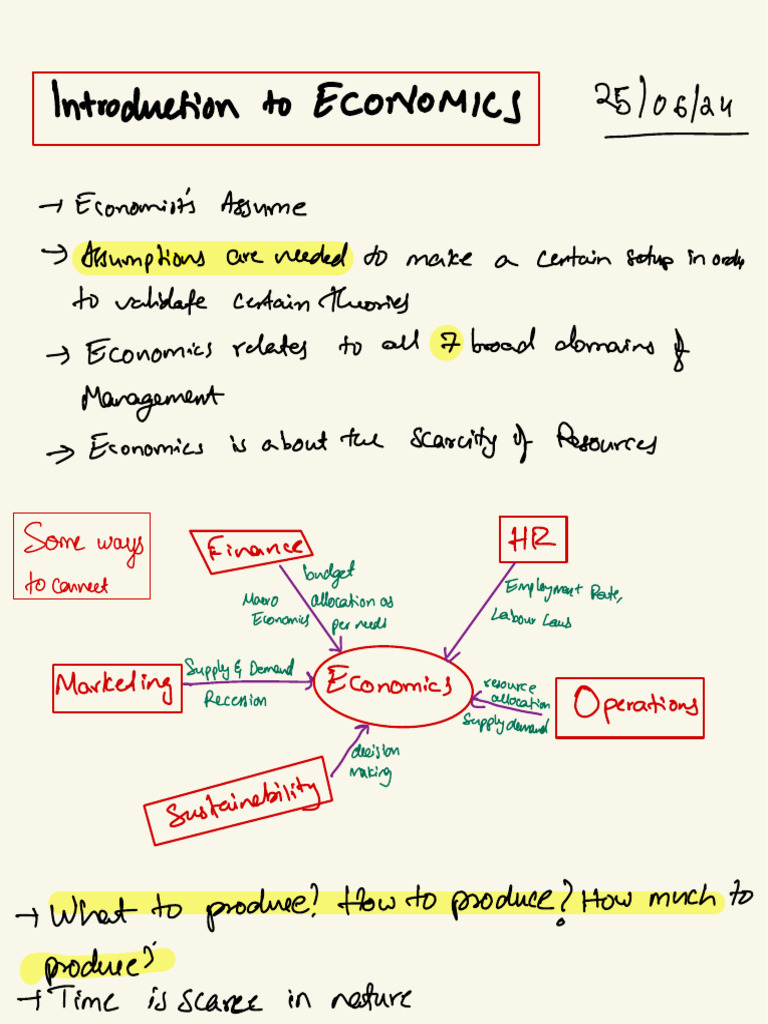 Introduction to ECONOMICS
25/06/24
→ Economist's Assume
→ Assumptions are needed to make a certain setup in order
to validate certain Theories
→ Economics relates to all 7 broad domains of
Management
→ Economics is about the scarcity of Resources
Some ways
to connect
Finance
HR
budget
allocation as
per needs
Macro
Economics
Employment Rate,
Labour Laws
Marketing
Supply & Demand
Recession
Economics
resource
allocation
Supply demand
Operations
decision
making
Sustainability
→ What to produce? How to produce? How much to
produce?
→ Time is scarce in nature